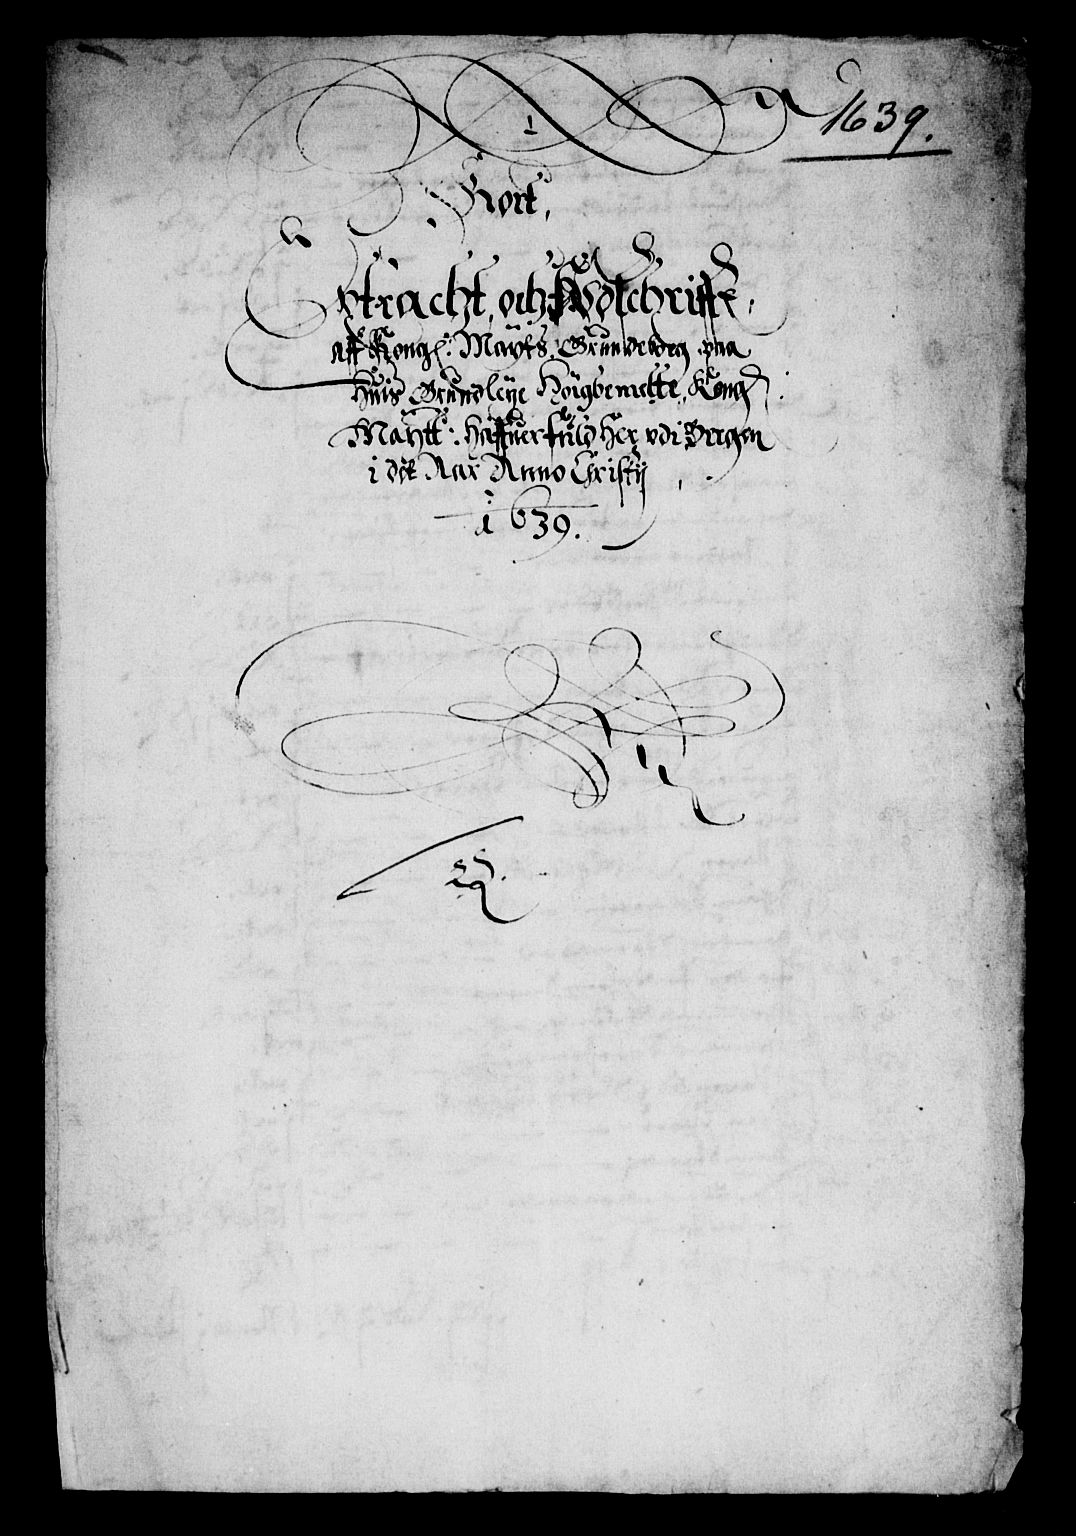 1639.
1
Kort,
Extracht, och Udschrifft,
aff Kong: Maytz. Grundebog, paa
Huis Grundleÿe Höigbemelte, Kong:
Maÿtt: haffuer fuld her udi Bergen
i det Aar Anno Christÿ
1639.